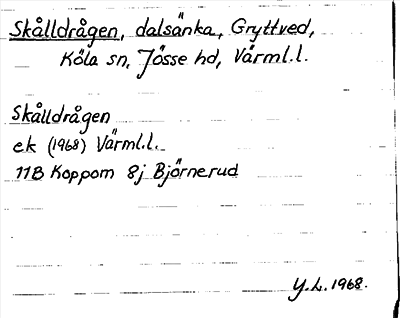 Skålldrågen, dalsänka, Gryttved,
Köla sn, Jösse hd, Värml.l.
Skålldrågen
ek (1968) Värml.l.
11B Koppom 8j Björnerud
Y.L. 1968.